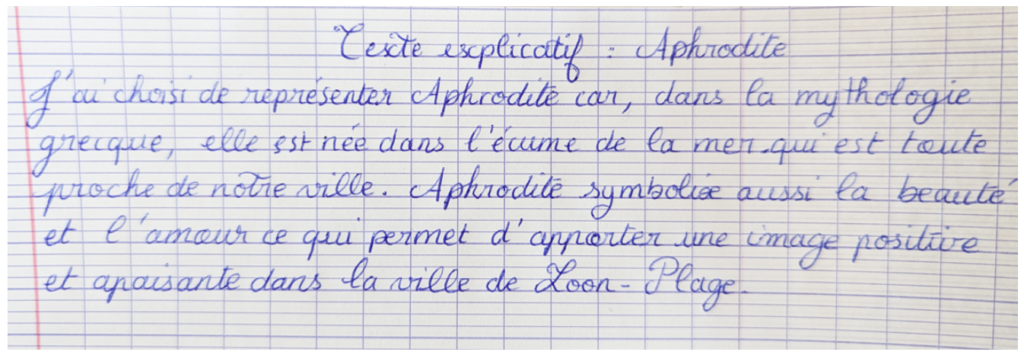 Texte explicatif : Aphrodite
J'ai choisi de représenter Aphrodite car, dans la mythologie
grecque, elle est née dans l'écume de la mer qui est toute
proche de notre ville. Aphrodite symbolise aussi la beauté
et l'amour ce qui permet d'apporter une image positive
et apaisante dans la ville de Loon-Plage.